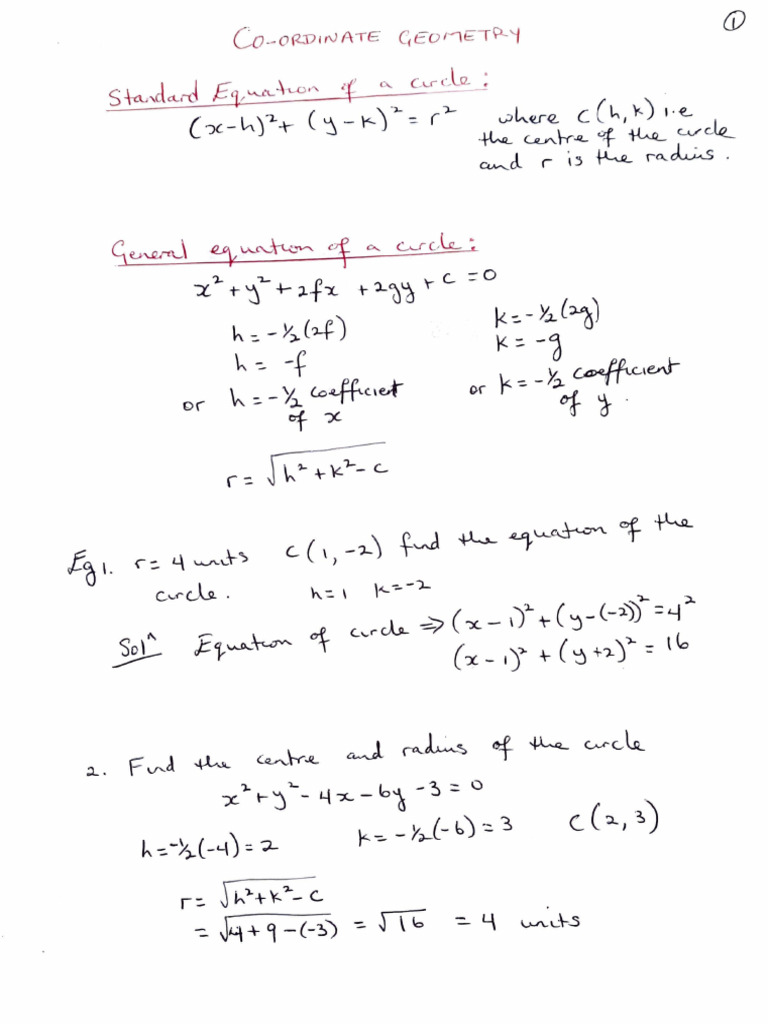 ①
CO-ORDINATE GEOMETRY
Standard Equation of a circle:
(x-h)² + (y-k)² = r² where C(h,k) i.e
the centre of the circle
and r is the radius.
General equation of a circle:
x² + y² + 2fx + 2gy + c = 0
h = -½(2f) k = -½(2g)
h = -f k = -g
or h = -½ coefficient of x or k = -½ coefficient of y.
r = √(h² + k² - c)
Eg 1. r = 4 units C(1, -2) find the equation of the
circle. h = 1 k = -2
Solⁿ Equation of circle ⇒ (x-1)² + (y-(-2))² = 4²
(x-1)² + (y+2)² = 16
2. Find the centre and radius of the circle
x² + y² - 4x - 6y - 3 = 0
h = -½(-4) = 2 k = -½(-6) = 3 C(2, 3)
r = √(h² + k² - c)
= √(4 + 9 - (-3)) = √16 = 4 units